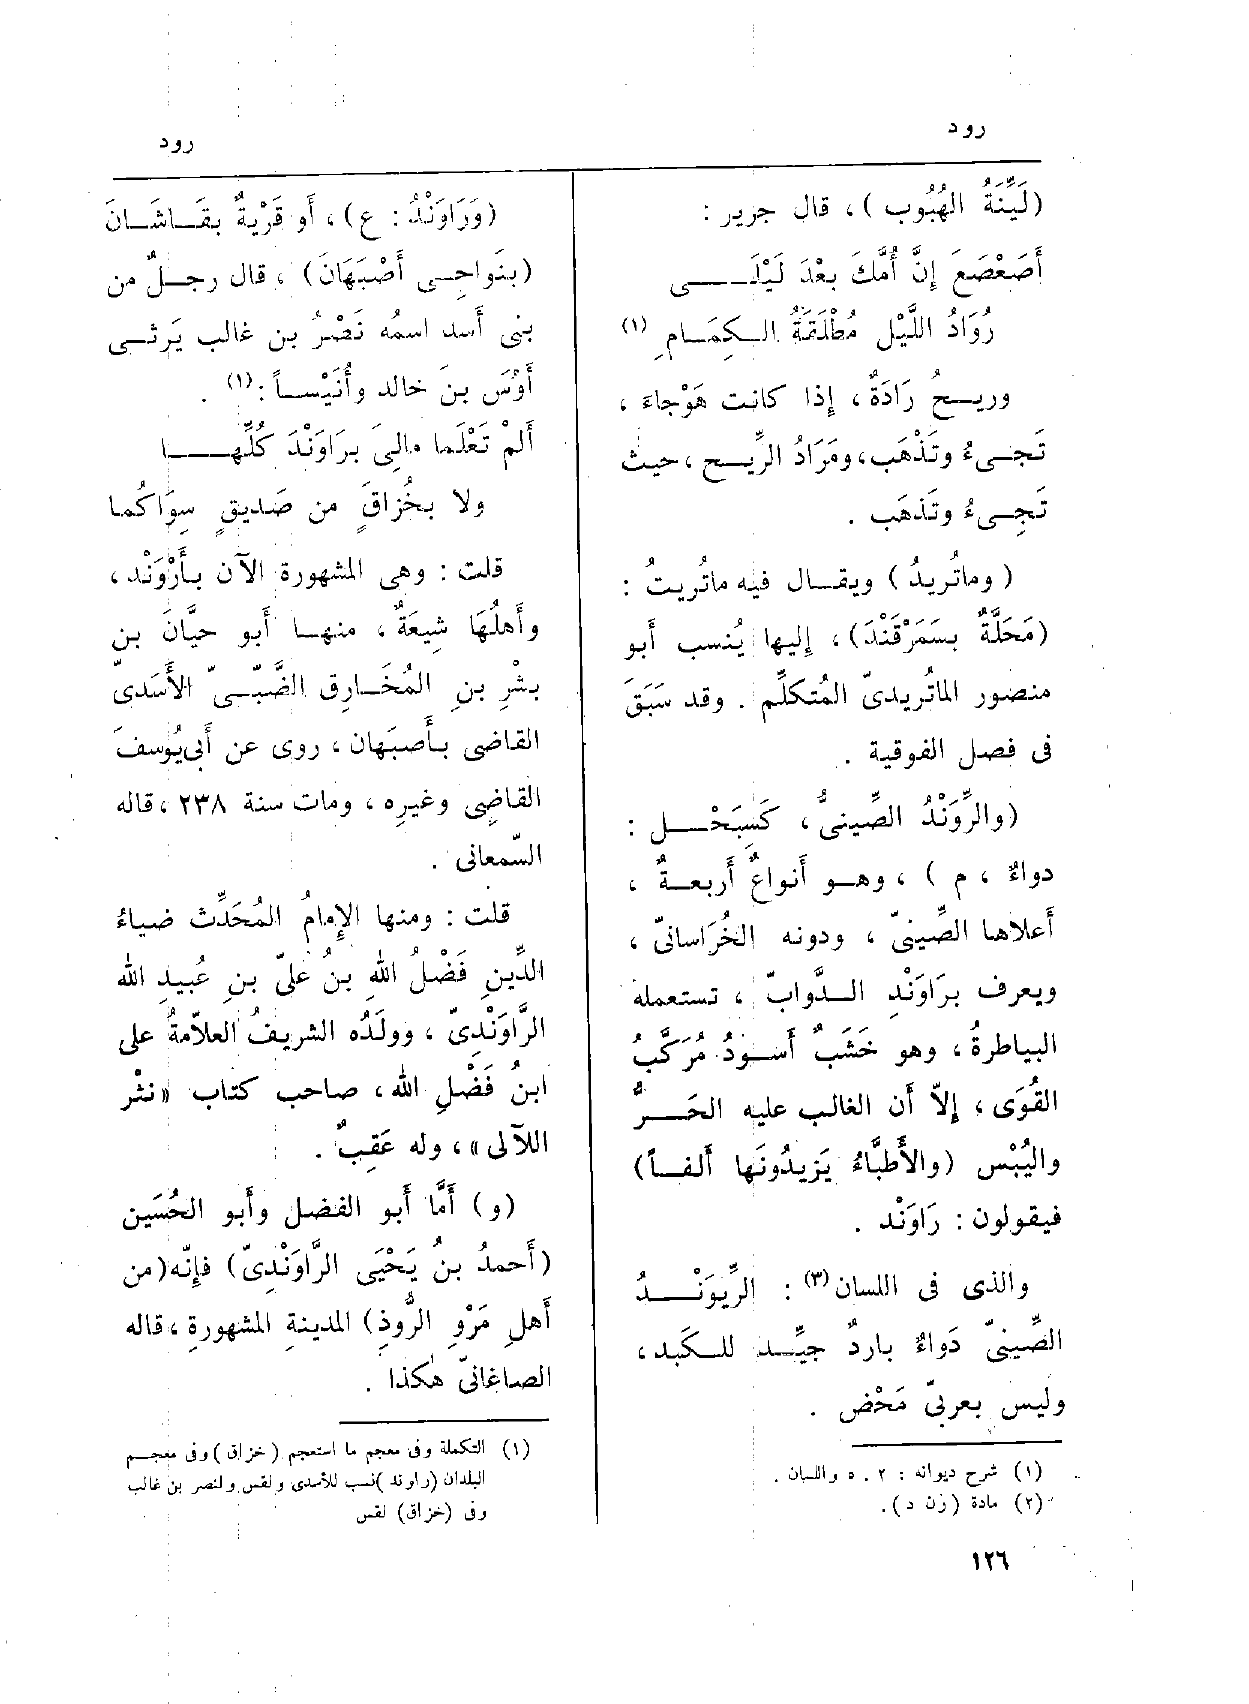 رود
رود
(لَيِّنَةُ الهُبُوب) ، قال جرير :
أَصَعْصَعَ إِنَّ أُمَّكَ بعْدَ لَيْلَـــى
رُوَادُ اللَّيْلِ مُطْلَقَةُ الـكِمَـامِ (١)
وريـحٌ رَادَةٌ ، إِذا كانت هَوْجاءَ ،
تَجـىءُ وتَذْهَب ، ومَرَادُ الرِّيـحِ ، حيث
تَجِـىءُ وتَذهَب .
( وماتُريدُ ) ويقـال فيه ماتُريتُ :
(مَحَلَّةٌ بسَمَرْقَنْدَ) ، إِليها يُنسب أَبو
منصور الماتُريدىّ المُتكلِّم . وقد سَبَقَ
فى فصل الفوقية .
(والرِّوَنْدُ الصِّينىُّ ، كَسِبَحْـل :
دواءٌ ، م ) ، وهـو أَنواعٌ أَربعـةٌ ،
أَعلاها الصِّينىّ ، ودونه الخُرَاسانىّ ،
ويعرف برَاوَنْدِ الـدَّوابّ ، تستعمله
البياطرةُ ، وهو خَشَبٌ أَسـودُ مُرَكَّبُ
القُوَى ، إِلاّ أَن الغالب عليه الحَـرُّ
واليُبْس (والأَطبَّاءُ يَزيدُونَها أَلفـاً)
فيقولون : رَاوَنْد .
والذى فى اللسان(٣) : الرِّيوَنْــدُ
الصِّينىّ دَواءٌ باردٌ جيِّـد للـكَبد ،
وليس بعربىّ مَحْض .
(١) شرح ديوانه : ٢ . ٥ واللسان .
(٢) مادة (زن د) .
١٢٦
(وَرَاوَنْدُ : ع) ، أَو قَرْيةٌ بقَـاشَـانَ
(بنَواحِـى أَصْبَهَانَ) ، قال رجـلٌ من
بنى أَسد اسمُه نَصْرُ بن غالب يَرثـى
أَوْسَ بنَ خالد وأُنَيْسـاً :(١) .
أَلمْ تَعْلَما مالِىَ برَاوَنْدَ كُلِّهـــا
ولا بخُزاقَ من صَديقٍ سِوَاكُما
قلت : وهى المشهورة الآن بـأَرْوَنْد ،
وأَهلُهَا شِيعَةٌ ، منهـا أَبو حيَّانَ بن
بشْرِ بنِ المُخَـارِق الضَّبّـىّ الأَسَدىّ
القاضى بـأَصبَهان ، روى عن أَبى يُوسفَ
القاضِى وغيرِه ، ومات سنة ٢٣٨ ، قاله
السّمعانى .
قلت : ومنها الإِمامُ المُحَدِّث ضياءُ
الدِّينِ فَضْلُ اللهِ بنُ علىّ بنِ عُبيدِ الله
الرَّاوَنْدِىّ ، وولَدُه الشريفُ العلاّمةُ على
ابنُ فَضْلِ الله ، صاحب كتاب «نثْر
اللآلى» ، وله عَقِبٌ .
(و) أَمَّا أَبو الفضل وأَبو الحُسَين
(أَحمدُ بنُ يَحْيَى الرَّاوَنْدِىّ) فإِنّه (من
أَهلِ مَرْوِ الرُّوذِ) المدينةِ المشهورةِ ، قاله
الصاغانىّ هٰكذا .
(١) التكملة وفى معجم ما استعجم (خزاق) وفى معجـم
البلدان (راوند) نسب للأسدى ولقس ولنصر بن غالب
وفى (خزاق) لقس